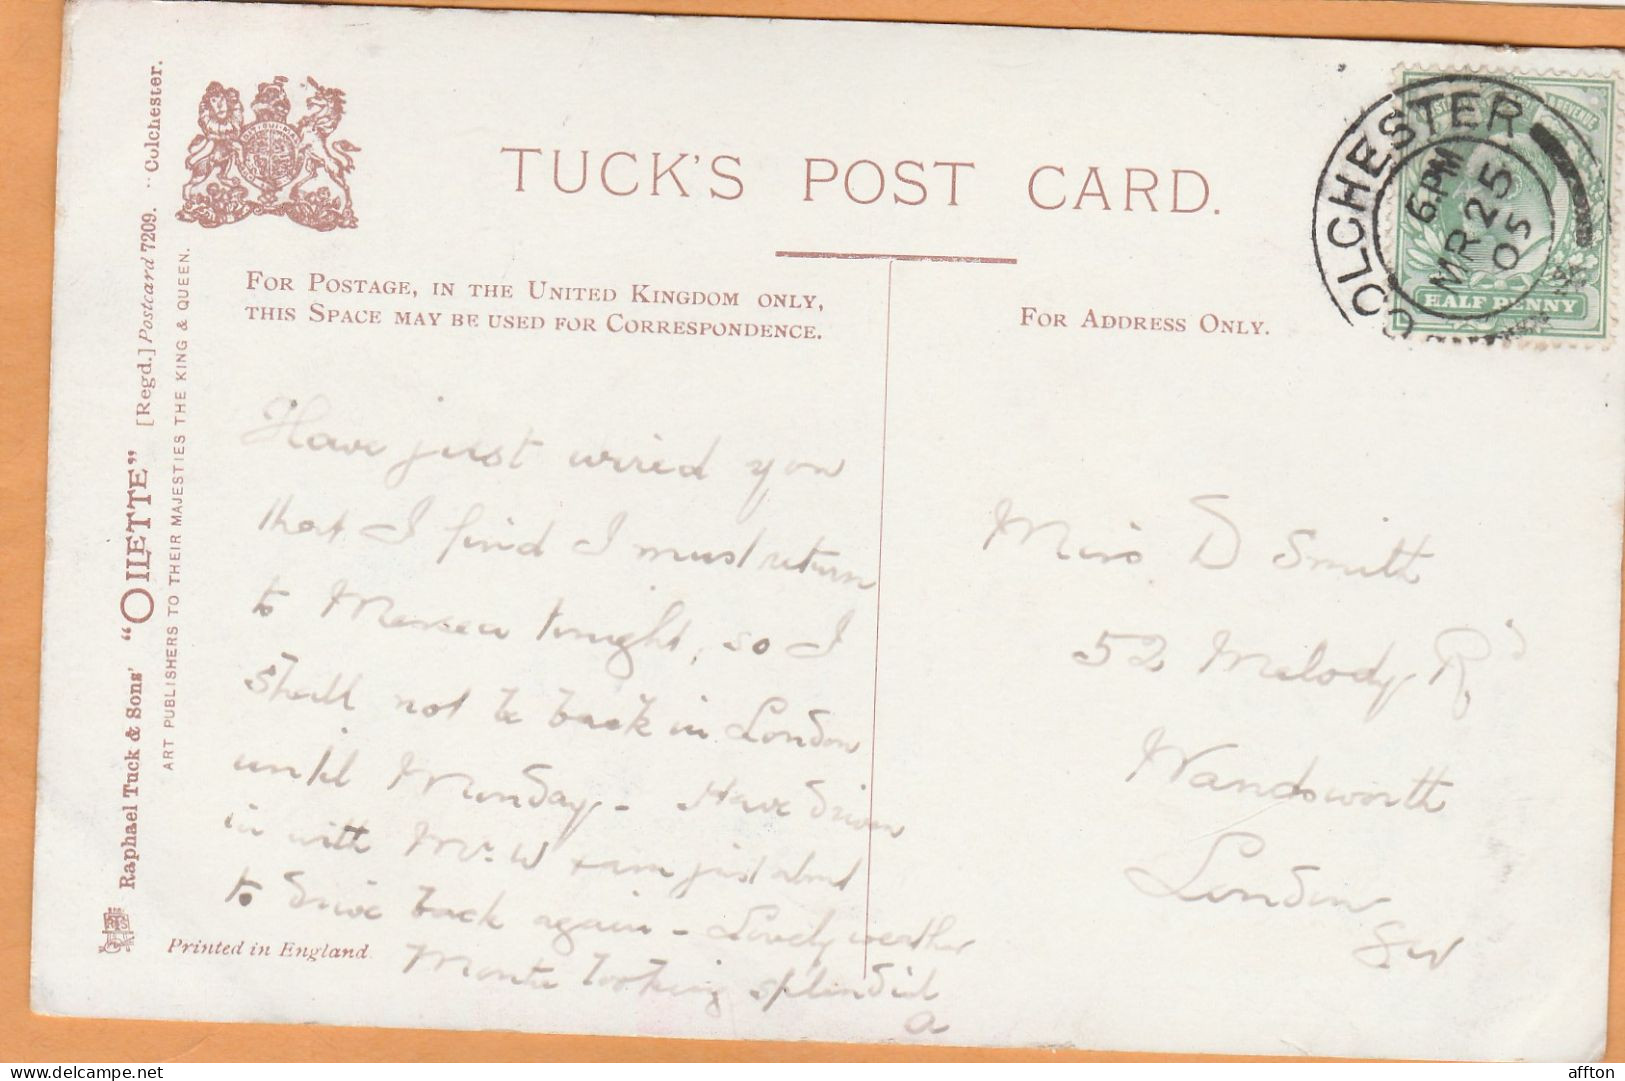 TUCK'S POST CARD.
FOR POSTAGE, IN THE UNITED KINGDOM ONLY,
THIS SPACE MAY BE USED FOR CORRESPONDENCE.
FOR ADDRESS ONLY.
COLCHESTER
6 PM
MR 25
05
HALF PENNY
Raphael Tuck & Sons' "OILETTE" [Regd.] Postcard 7209. Colchester.
ART PUBLISHERS TO THEIR MAJESTIES THE KING & QUEEN.
Have just wired you
that I find I must return
to tonight, so I
shall not be back in London
until Monday - Have driven
in with Mr. W + am just about
to drive back again - Lovely weather
looking splendid
a
Miss D Smith
52 Melody Rd
Wandsworth
London
SW
Printed in England
affton